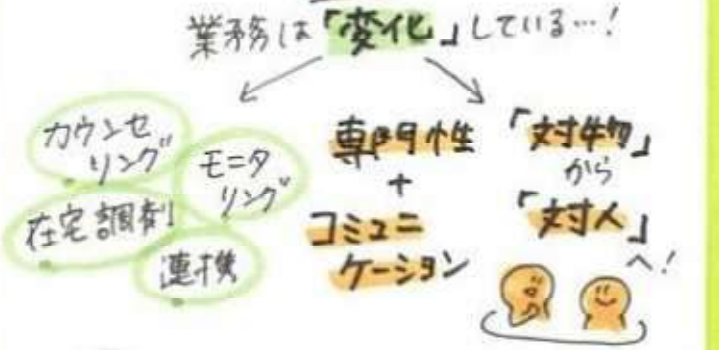 業務は「変化」している…!
カウンセ
リング
モニタ
リング
在宅調剤
連携
専門性
+
コミュニ
ケーション
「対物」
から
「対人」
へ!